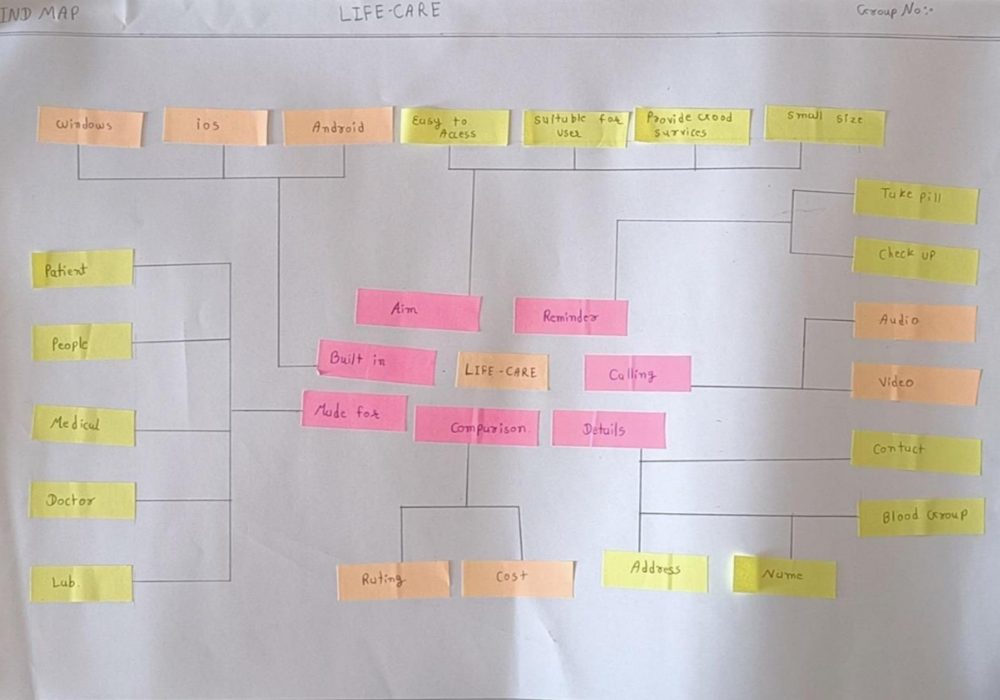 IND MAP
LIFE-CARE
Group No:-
Windows
ios
Android
Easy to
Access
Suituble for
User
Provide Good
Survices
Small Size
Take pill
Check UP
Patient
Aim
Reminder
Audio
People
Built in
LIFE-CARE
Calling
Video
Medical
Made for
Comparison
Details
Contact
Doctor
Blood Group
Lab.
Rating
Cost
Address
Name